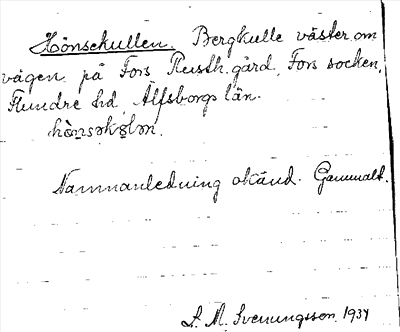 Hönsekullen. Bergkulle väster om
vägen på Fors Rusth. gård, Fors socken,
Flundre hd, Älfsborgs län.
hö̀nsəkɷlən.
Namnanledning okänd. Gammalt.
L. M. Svenungsson 1934